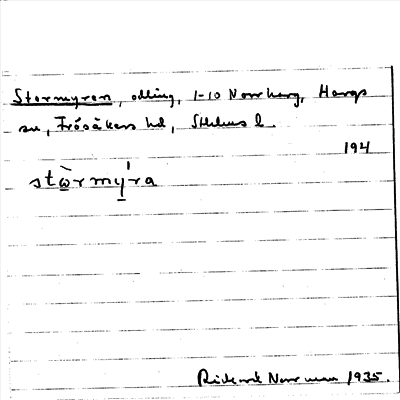 Stormyren, odling, 1-10 Norrberg, Hargs
sn, Frösåkers hd, Sthlms l.
194
stòrmý̱ra
Rickard Norrman 1935.